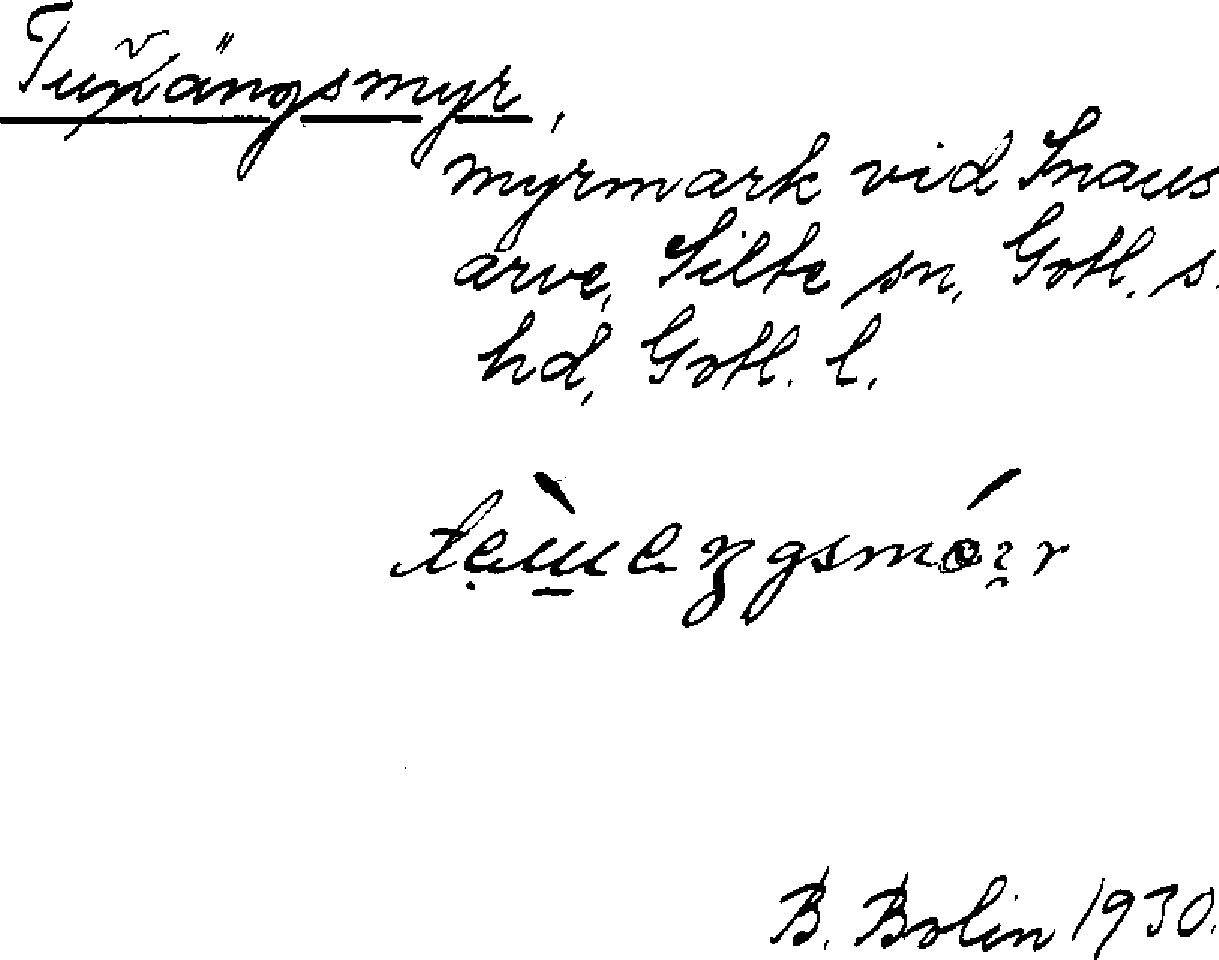 Tuvängsmyr,
myrmark vid Snaus
arve, Silte sn, Gotl. s.
hd, Gotl. l.
B. Bolin 1930.